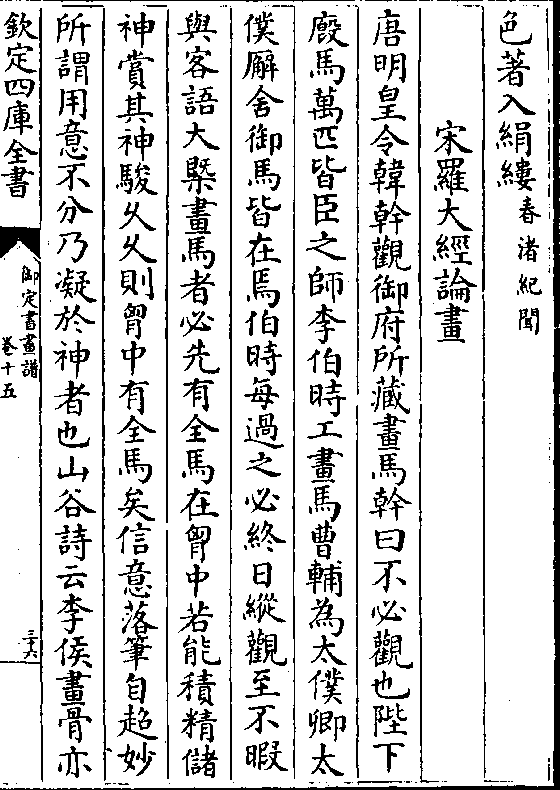 色著入絹縷春渚紀聞
宋羅大經論畫
唐明皇令韓幹觀御府所藏畫馬幹曰不必觀也陛下
廄馬萬匹皆臣之師李伯時工畫馬曹輔為太僕卿太
僕廨舍御馬皆在焉伯時每過之必終日縱觀至不暇
與客語大槩畫馬者必先有全馬在胷中若能積精儲
神賞其神駿久久則胷中有全馬矣信意落筆自超妙
所謂用意不分乃凝於神者也山谷詩云李侯畫骨亦
欽定四庫全書
御定書畫譜
卷十五
三十六